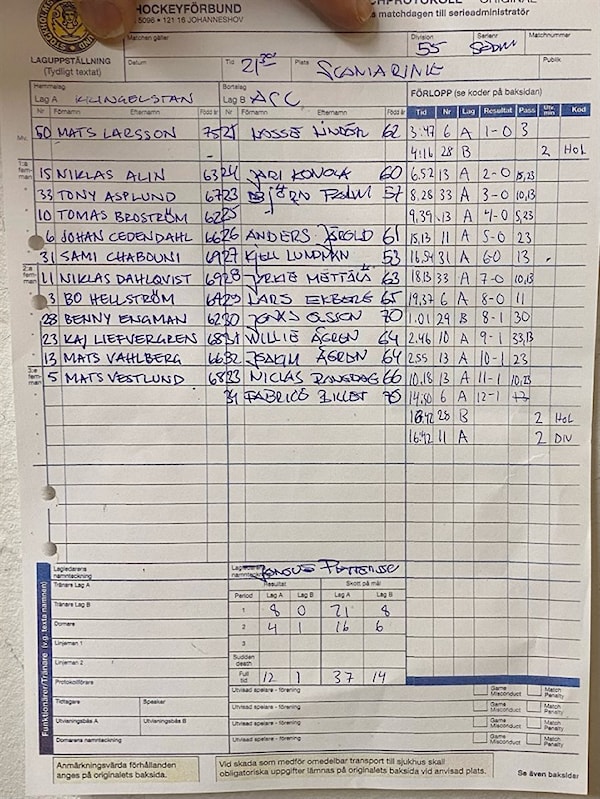 HOCKEYFÖRBUND
5096 • 121 16 JOHANNESHOV
ORIGINAL
matchdagen till serieadministratör
LAGUPPSTÄLLNING
(Tydligt textat)
Matchen gäller
Division
55
Serienr
Matchnummer
Datum
Tid 21
Plats
Publik
Hemmalag
Lag A KLINGELSTAN
Bortalag
Lag B
FÖRLOPP (se koder på baksidan)
Nr Förnamn Efternamn Född år Nr Förnamn Efternamn Född år
Tid Nr Lag Resultat Pass Utv. min Kod
Mv.
50 MATS LARSSON 75 LINDÉN 62 3.47 6 A 1-0 3
4.16 28 B 2 HOL
1:a femman
15 NIKLAS ALIN 63 24 JARI 60 6.52 13 A 2-0 15,23
33 TONY ASPLUND 67 23 BJÖRN PALM 57 8.28 33 A 3-0 10,13
10 TOMAS BROSTRÖM 62 25 9.39 13 A 4-0 5,23
6 JOHAN CEDENDAHL 66 26 ANDERS 61 15.13 11 A 5-0 23
31 SAMI CHABOUNI 69 27 KJELL LUNDMAN 53 16.54 31 A 6-0 13
2:a femman
11 NIKLAS DAHLQVIST 69 28 63 18.13 33 A 7-0 10,13
3 BO HELLSTRÖM 69 29 LARS EKBERG 65 19.37 6 A 8-0 11
28 BENNY ENGMAN 62 30 JONAS OLSSON 70 1.01 29 B 8-1 30
23 KAJ LIEFVERGREN 68 31 WILLIE ÅGREN 64 2.46 10 A 9-1 33,13
13 MATS VAHLBERG 66 32 JOAKIM ÅGREN 64 2.55 13 A 10-1 23
3:e femman
5 MATS VESTLUND 68 33 NICLAS 66 10.18 13 A 11-1 10,23
FABRICE 70 14.50 6 A 12-1
16.42 28 B 2 HOL
16.42 11 A 2 DIV
Funktionärer/Tränare (v.g. texta namnen)
Lagledarens namnteckning
Lagledarens namnteckning
Tränare Lag A
Resultat Skott på mål
Tränare Lag B
Period Lag A Lag B Lag A Lag B
1 8 0 21 8
Domare
2 4 1 16 6
Linjeman 1
3
Linjeman 2
Sudden death
Protokollförare
Full tid 12 1 37 14
Tidtagare Speaker
Utvisad spelare - förening Game Misconduct Match Penalty
Utvisningsbås A Utvisningsbås B
Utvisad spelare - förening Game Misconduct Match Penalty
Utvisad spelare - förening Game Misconduct Match Penalty
Domarens namnteckning
Utvisad spelare - förening Game Misconduct Match Penalty
Anmärkningsvärda förhållanden
anges på originalets baksida.
Vid skada som medför omedelbar transport till sjukhus skall
obligatoriska uppgifter lämnas på originalets baksida vid anvisad plats.
Se även baksidan